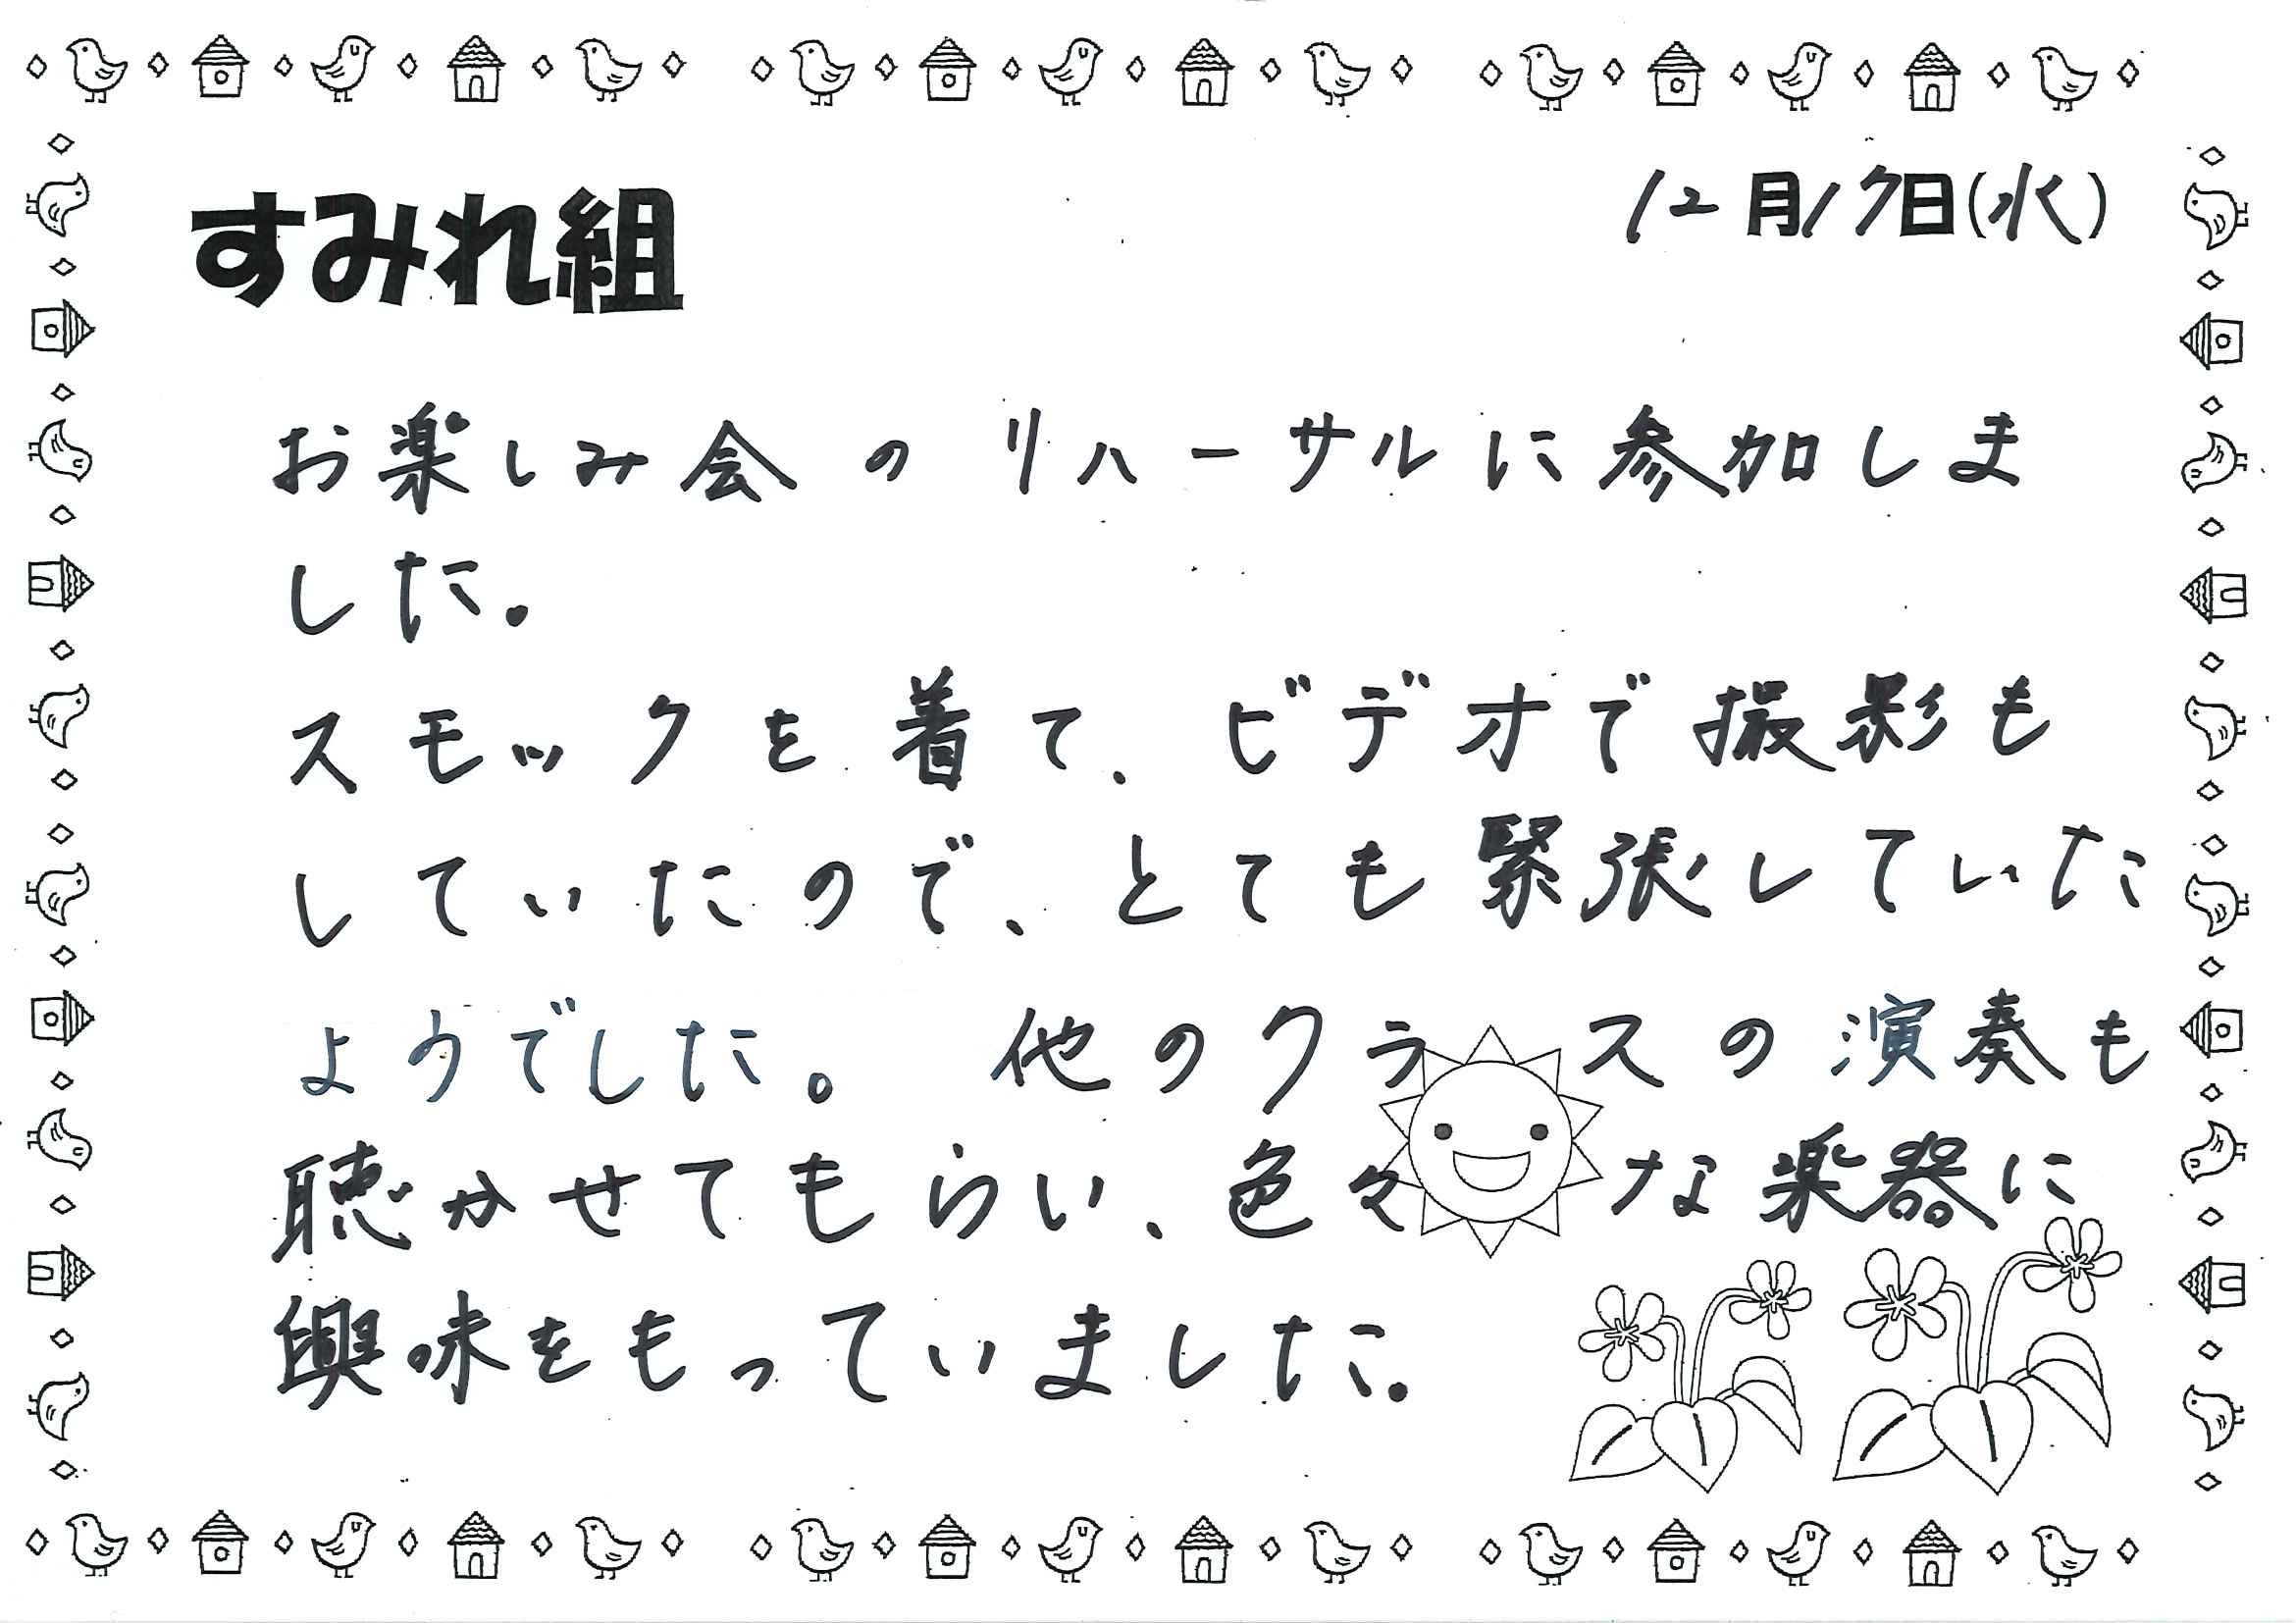 すみれ組
12月17日(水)
お楽しみ会のリハーサルに参加しま
した。
スモックを着て、ビデオで撮影も
していたので、とても緊張していた
ようでした。他のクラスの演奏も
聴かせてもらい、色々な楽器に
興味をもっていました。